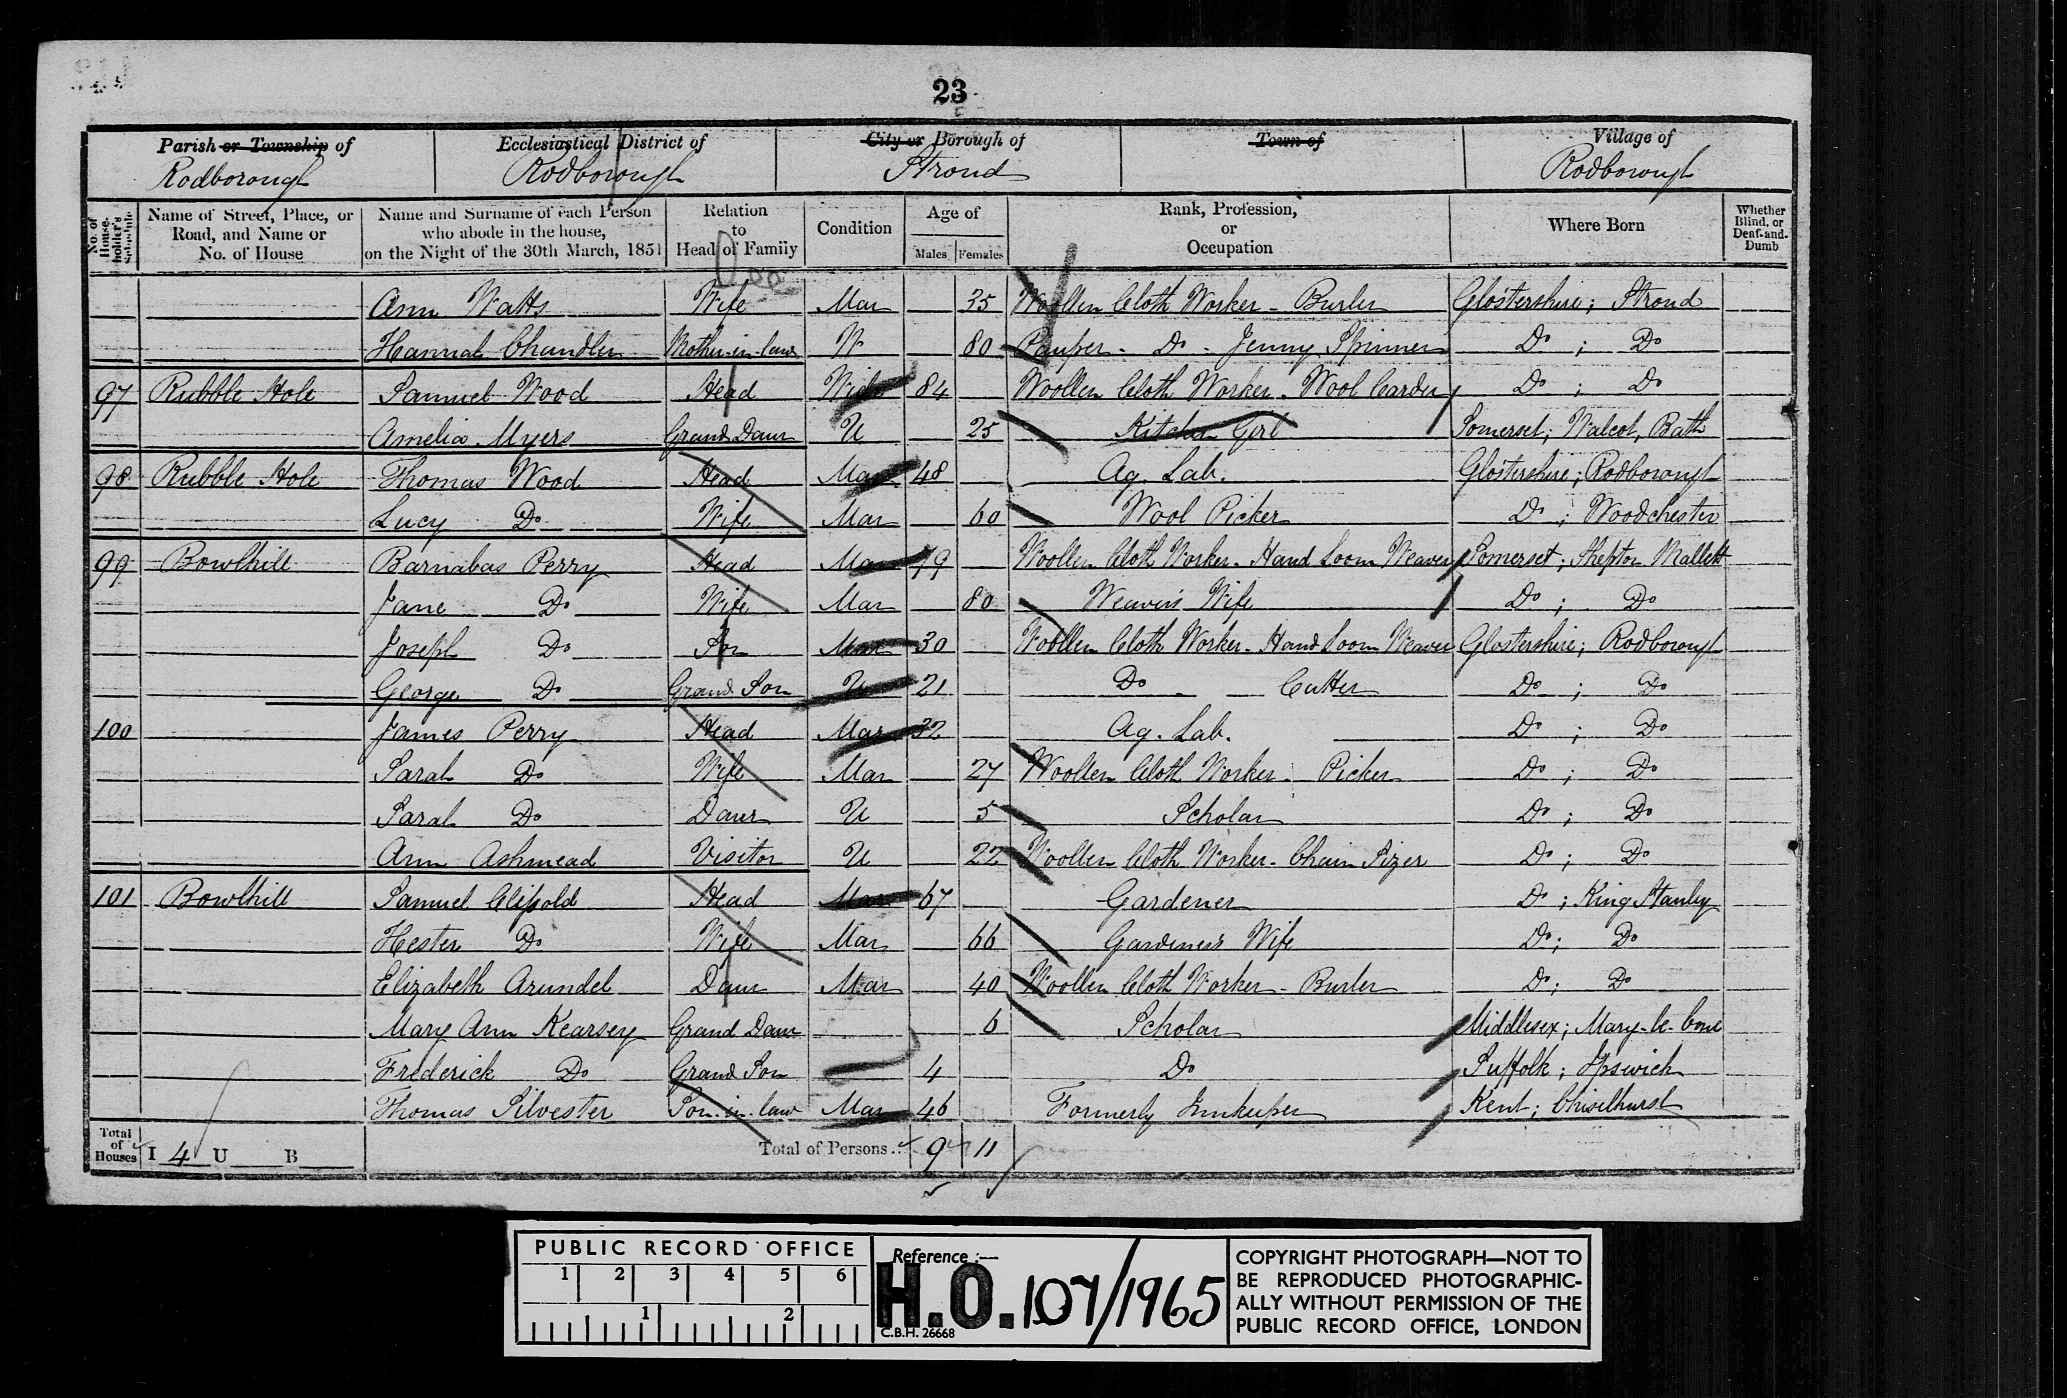 23
Parish or Township of Ecclesiastical District of City or Borough of Town of Village of
Rodborough Rodborough Stroud Rodborough
No. of House-holder's Schedule Name of Street, Place, or Road, and Name or No. of House Name and Surname of each Person who abode in the house, on the Night of the 30th March, 1851 Relation to Head of Family Condition Age of Males Females Rank, Profession, or Occupation Where Born Whether Blind, or Deaf-and-Dumb
Ann Watts Wife Mar 35 Woollen Cloth Worker - Burler Glostershire; Stroud
Hannah Chandler Mother-in-law W 80 Pauper - Do - Jenny Spinner Do ; Do
97 Rubble Hole Samuel Wood Head Widr 84 Woollen Cloth Worker - Wool Carder Do ; Do
Amelia Myers Grand Daur U 25 Kitchen Girl Somerset; Walcot, Bath
98 Rubble Hole Thomas Wood Head Mar 48 Ag. Lab. Glostershire; Rodborough
Lucy Do Wife Mar 60 Wool Picker Do ; Woodchester
99 Bowlhill Barnabas Perry Head Mar 79 Woollen Cloth Worker - Hand Loom Weaver Somerset; Shepton Mallett
Jane Do Wife Mar 80 Weaver's Wife Do ; Do
Joseph Do Son Mar 30 Woollen Cloth Worker - Hand Loom Weaver Glostershire; Rodborough
George Do Grand Son U 21 Do Cutter Do ; Do
100 James Perry Head Mar 32 Ag. Lab. Do ; Do
Sarah Do Wife Mar 27 Woollen Cloth Worker - Picker Do ; Do
Sarah Do Daur U 5 Scholar Do ; Do
Ann Ashmead Visitor U 22 Woollen Cloth Worker - Chain Sizer Do ; Do
101 Bowlhill Samuel Clissold Head Mar 67 Gardener Do ; King Stanley
Hester Do Wife Mar 66 Gardener's Wife Do ; Do
Elizabeth Arundel Daur Mar 40 Woollen Cloth Worker - Burler Do ; Do
Mary Ann Kearsey Grand Daur 6 Scholar Middlesex; Mary-le-bone
Frederick Do Grand Son 4 Do Suffolk; Ipswich
Thomas Silvester Son-in-law Mar 46 Formerly Innkeeper Kent; Chiselhurst
Total of Houses I 4 U B Total of Persons 9 11
PUBLIC RECORD OFFICE
1 2 3 4 5 6
1 2
Reference :—
H.O. 107/1965
C.B.H. 26668
COPYRIGHT PHOTOGRAPH—NOT TO
BE REPRODUCED PHOTOGRAPHIC-
ALLY WITHOUT PERMISSION OF THE
PUBLIC RECORD OFFICE, LONDON